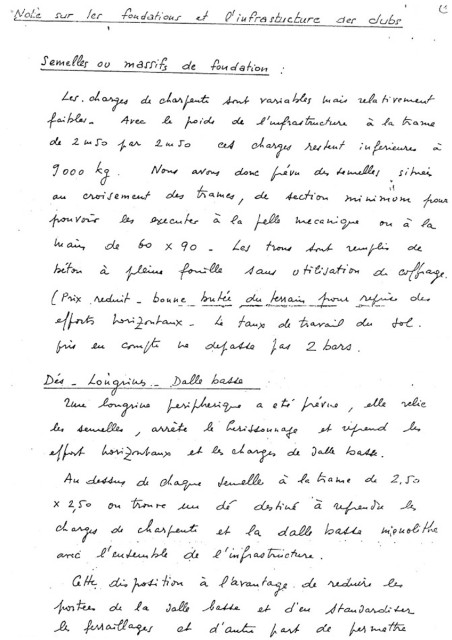 Note sur les fondations et l'infrastructure des clubs
Semelles ou massifs de fondation :
Les charges de charpente sont variables mais relativement
faibles. Avec le poids de l'infrastructure à la trame
de 2m50 par 2m50 ces charges restent inférieures à
9000 kg. Nous avons donc prévu des semelles, situées
au croisement des trames, de section minimum pour
pouvoir les exécuter à la pelle mécanique ou à la
main de 60 x 90 - Les trous sont remplis de
béton à pleine fouille sans utilisation de coffrage.
(Prix reduit - bonne butée du terrain pour reprise des
efforts horizontaux - Le taux de travail du sol
pris en compte ne dépasse pas 2 bars.
Dés - Longrines - Dalle basse
Une longrine périphérique a été prévue, elle relie
les semelles, arrête le hérissonnage et reprend les
effort horizontaux et les charges de dalle basse.
Au dessus de chaque semelle à la trame de 2,50
x 2,50 on trouve un dé destiné à reprendre les
charges de charpente et la dalle basse monolithe
avec l'ensemble de l'infrastructure.
Cette disposition à l'avantage de reduire les
portées de la dalle basse et d'en standardiser
le ferraillages et d'autre part de permettre